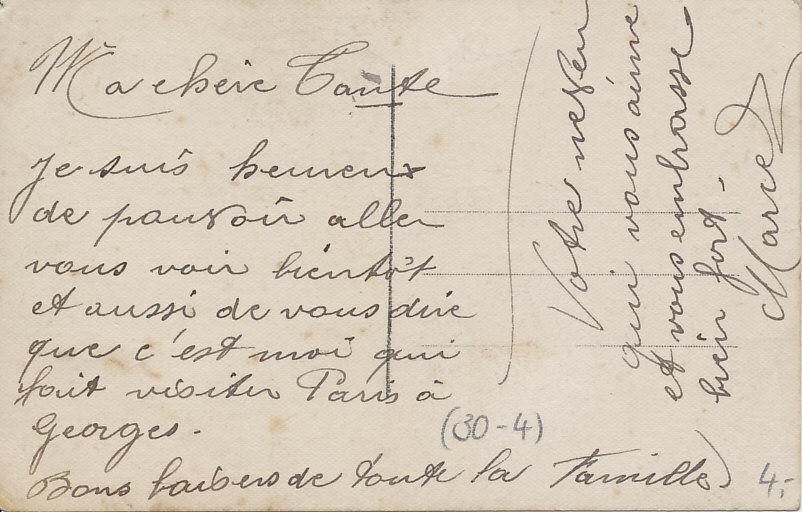 Ma chère Tante
Je suis heureux
de pouvoir aller
vous voir bientôt
et aussi de vous dire
que c'est moi qui
fait visiter Paris à
Georges.
Bons baisers de toute la Famille
(30-4)
4,-
Votre neveu
qui vous aime
et vous embrasse
bien fort -
Marcel